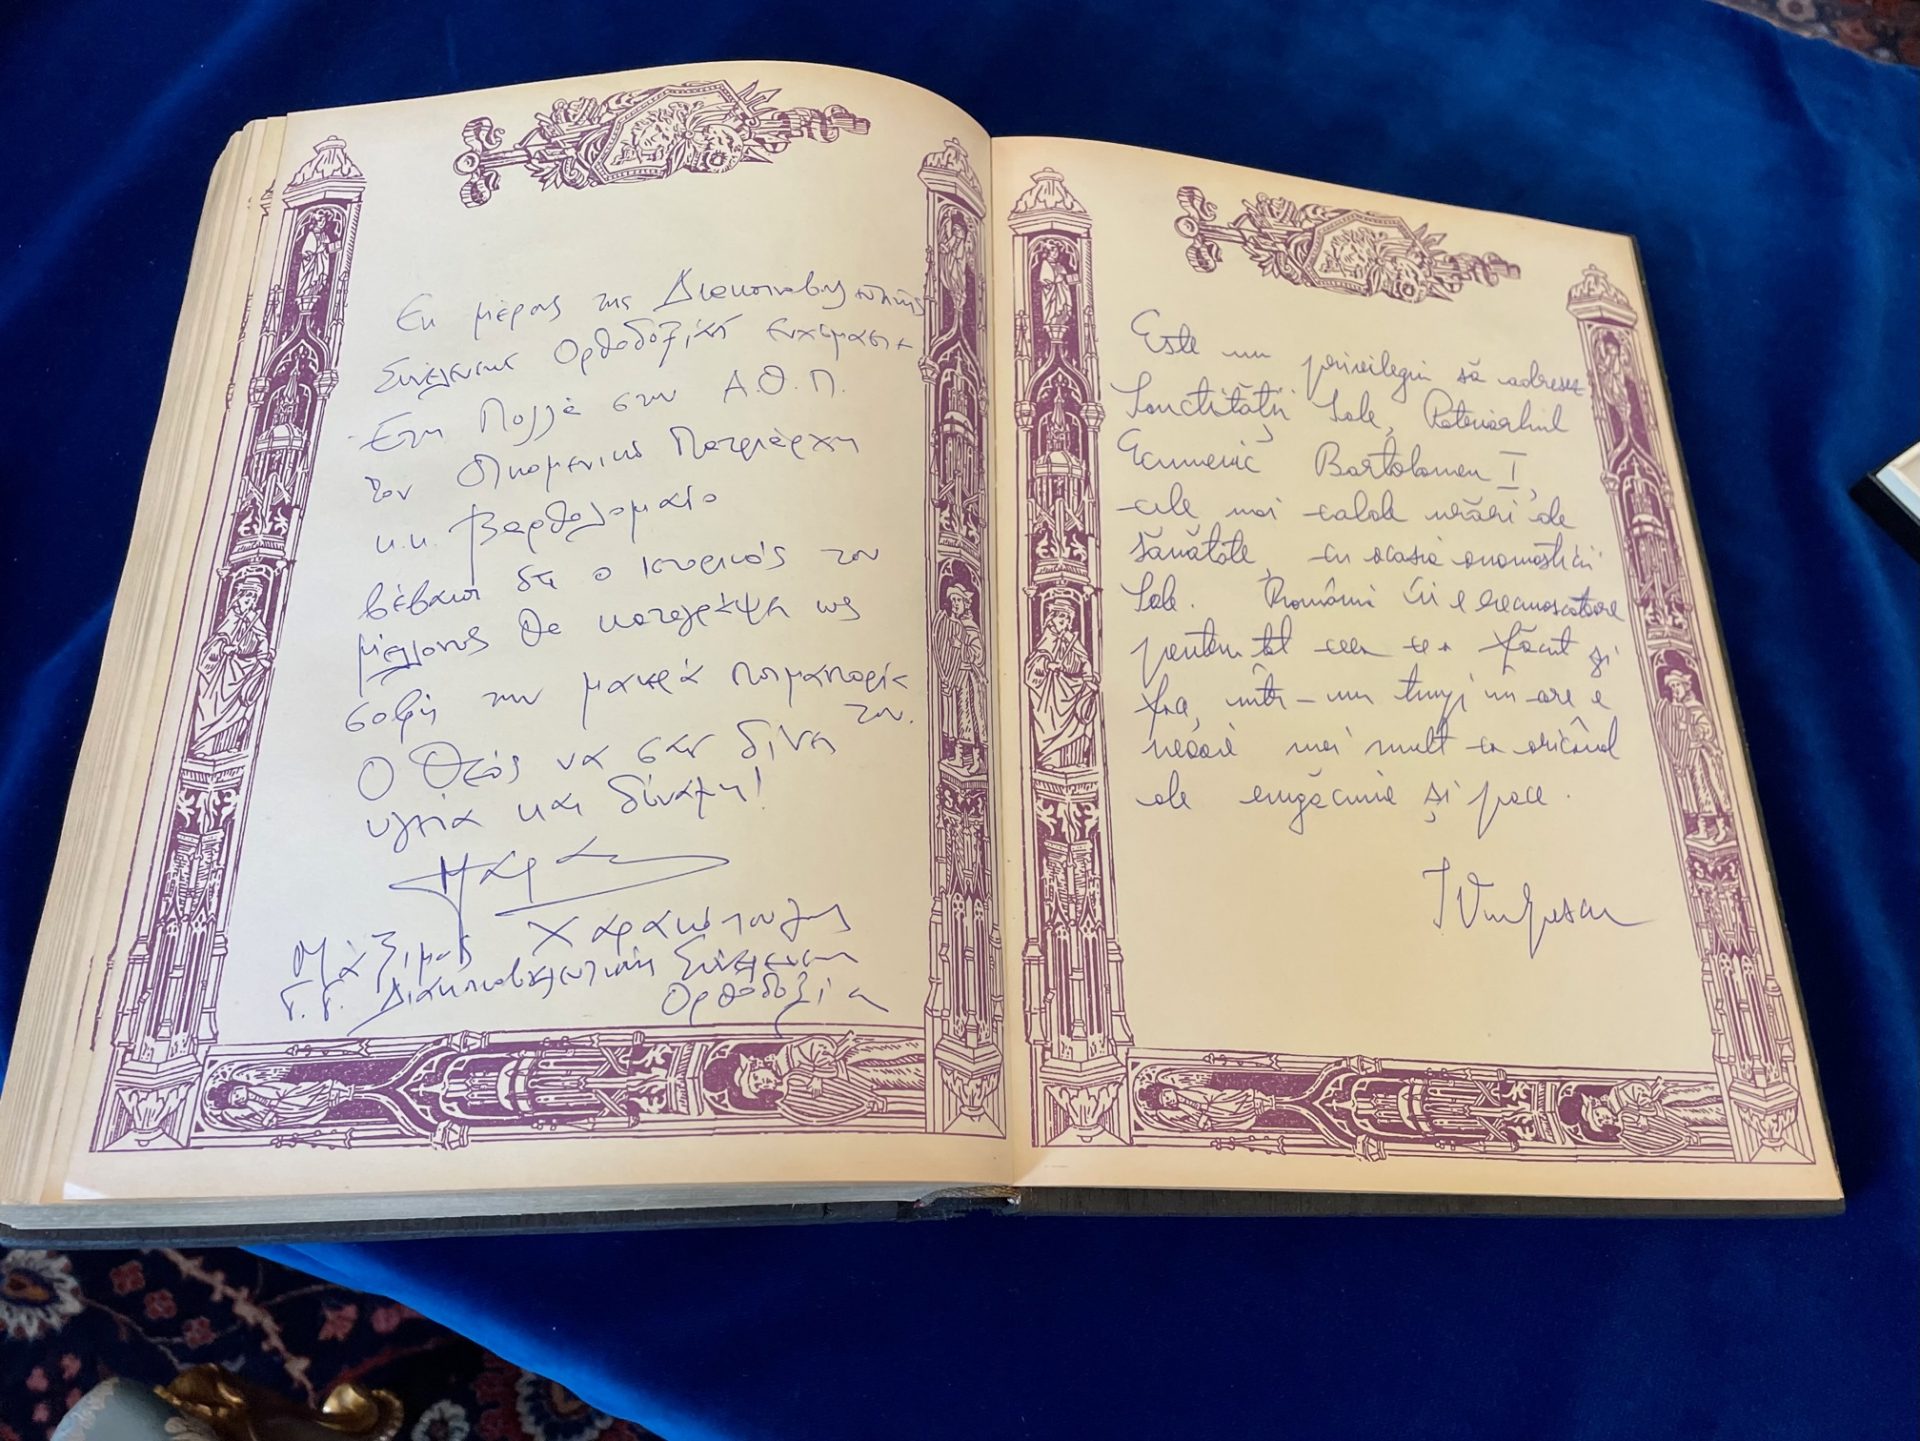 Εκ μέρους της Διακοινοβουλευτικής
Συνέλευσης Ορθοδοξίας ευχόμαστε
Έτη Πολλά στον Α.Θ.Π.
τον Οικουμενικό Πατριάρχη
κ.κ. Βαρθολομαίο
βέβαιοι ότι ο ιστορικός του
μέλλοντος θα καταγράψει ως
σοφή την μακρά ποιμαντορία
του.
Ο Θεός να σας δίνει
υγεία και δύναμη!
Μάξιμος Χαρακόπουλος
Γ.Γ. Διακοινοβουλευτικής Συνέλευσης
Ορθοδοξίας
Este un privilegiu să adresez
Sanctității Sale, Patriarhul
Ecumenic Bartolomeu I,
cele mai calde urări de
sănătate, cu ocazia onomasticii
Sale. România îi e recunoscătoare
pentru tot ceea ce a făcut și
face, într-un timp în care e
nevoie mai mult ca oricând
de rugăciune și pace.